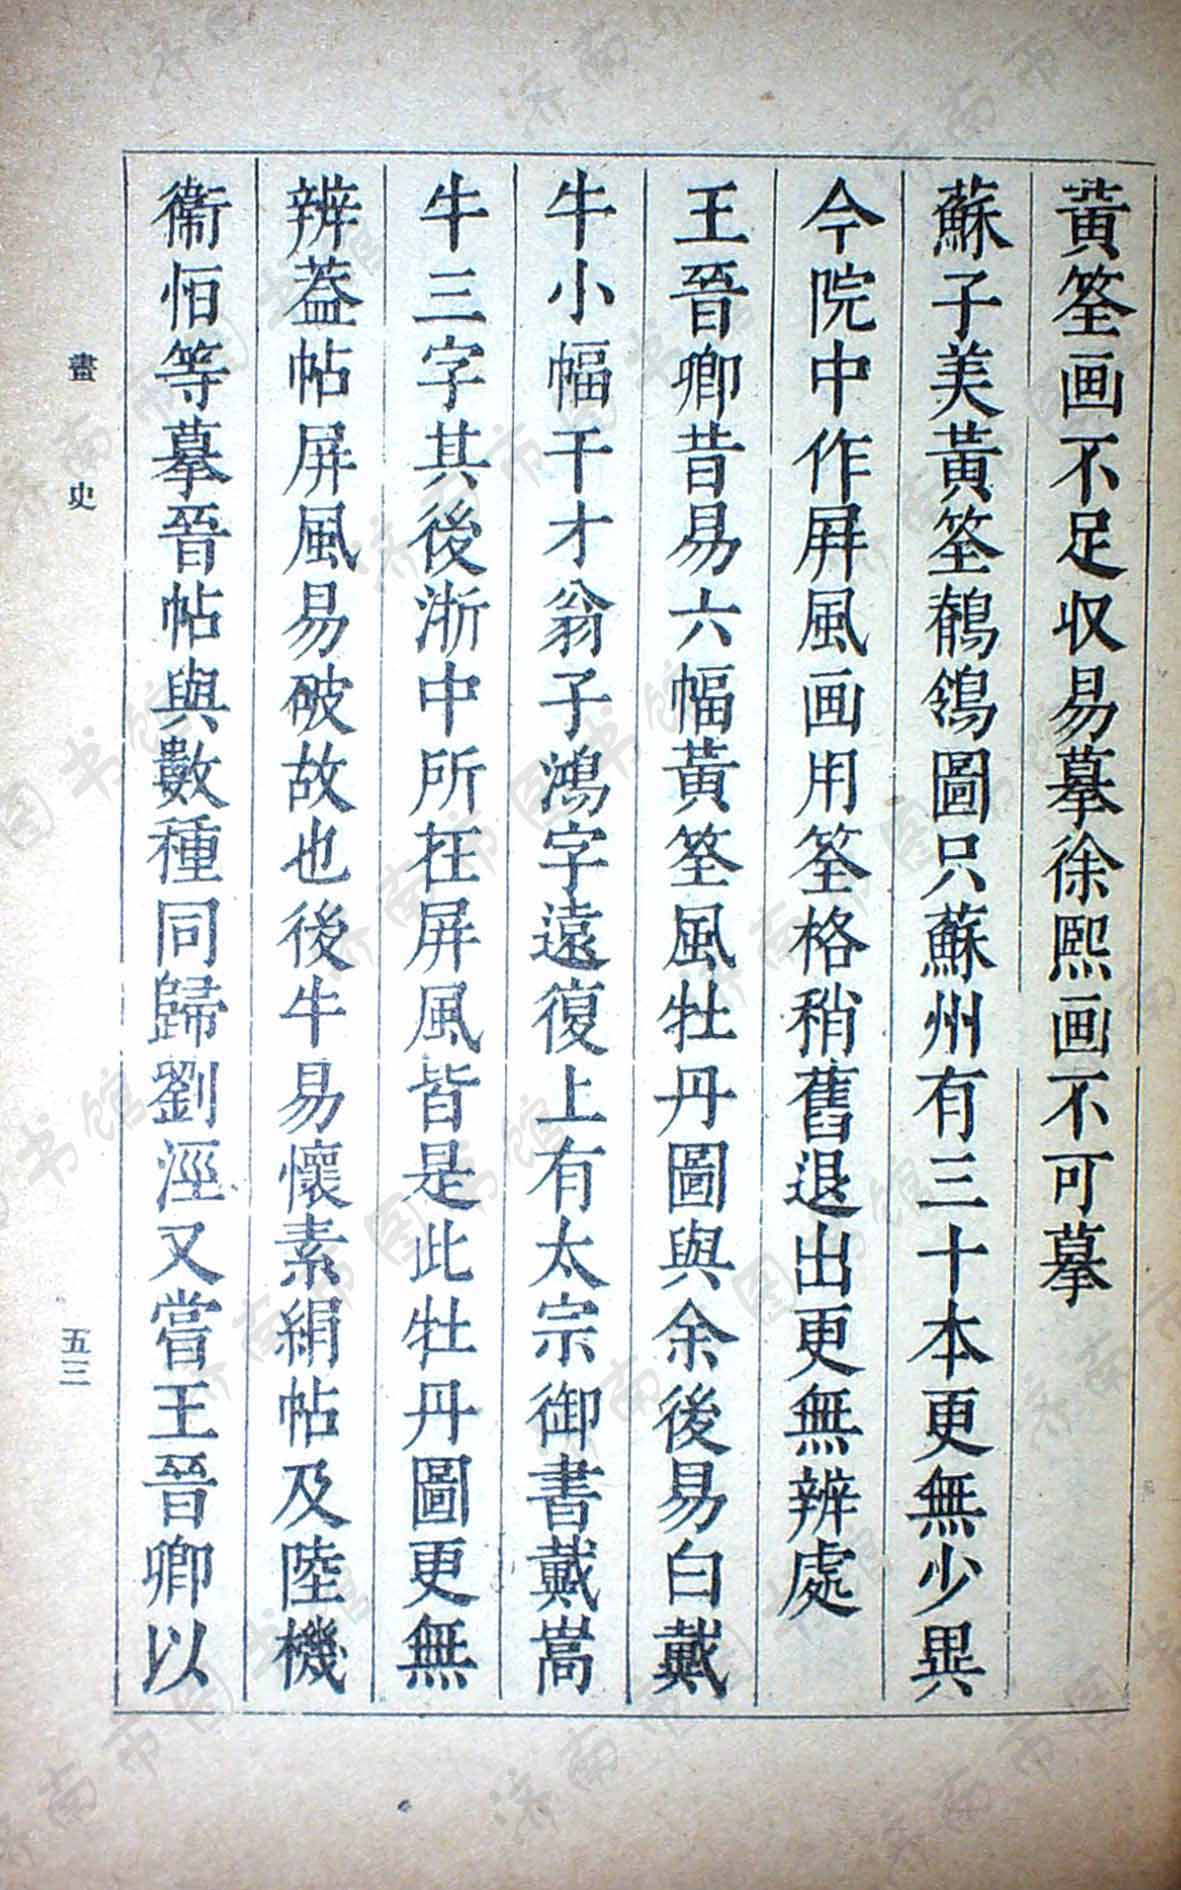 黃筌画不足収易摹徐熙画不可摹
蘇子美黃筌鶺鴒圖只蘇州有三十本更無少異
今院中作屏風画用筌格稍舊退出更無辨處
王晉卿昔易六幅黃筌風牡丹圖與余後易白戴
牛小幅于才翁子鴻字遠復上有太宗御書戴嵩
牛三字其後浙中所在屏風皆是此牡丹圖更無
辨蓋帖屏風易破故也後牛易懷素絹帖及陸機
衞恒等摹晉帖與數種同歸劉涇又嘗王晉卿以
畫史
五三
济南市图书馆